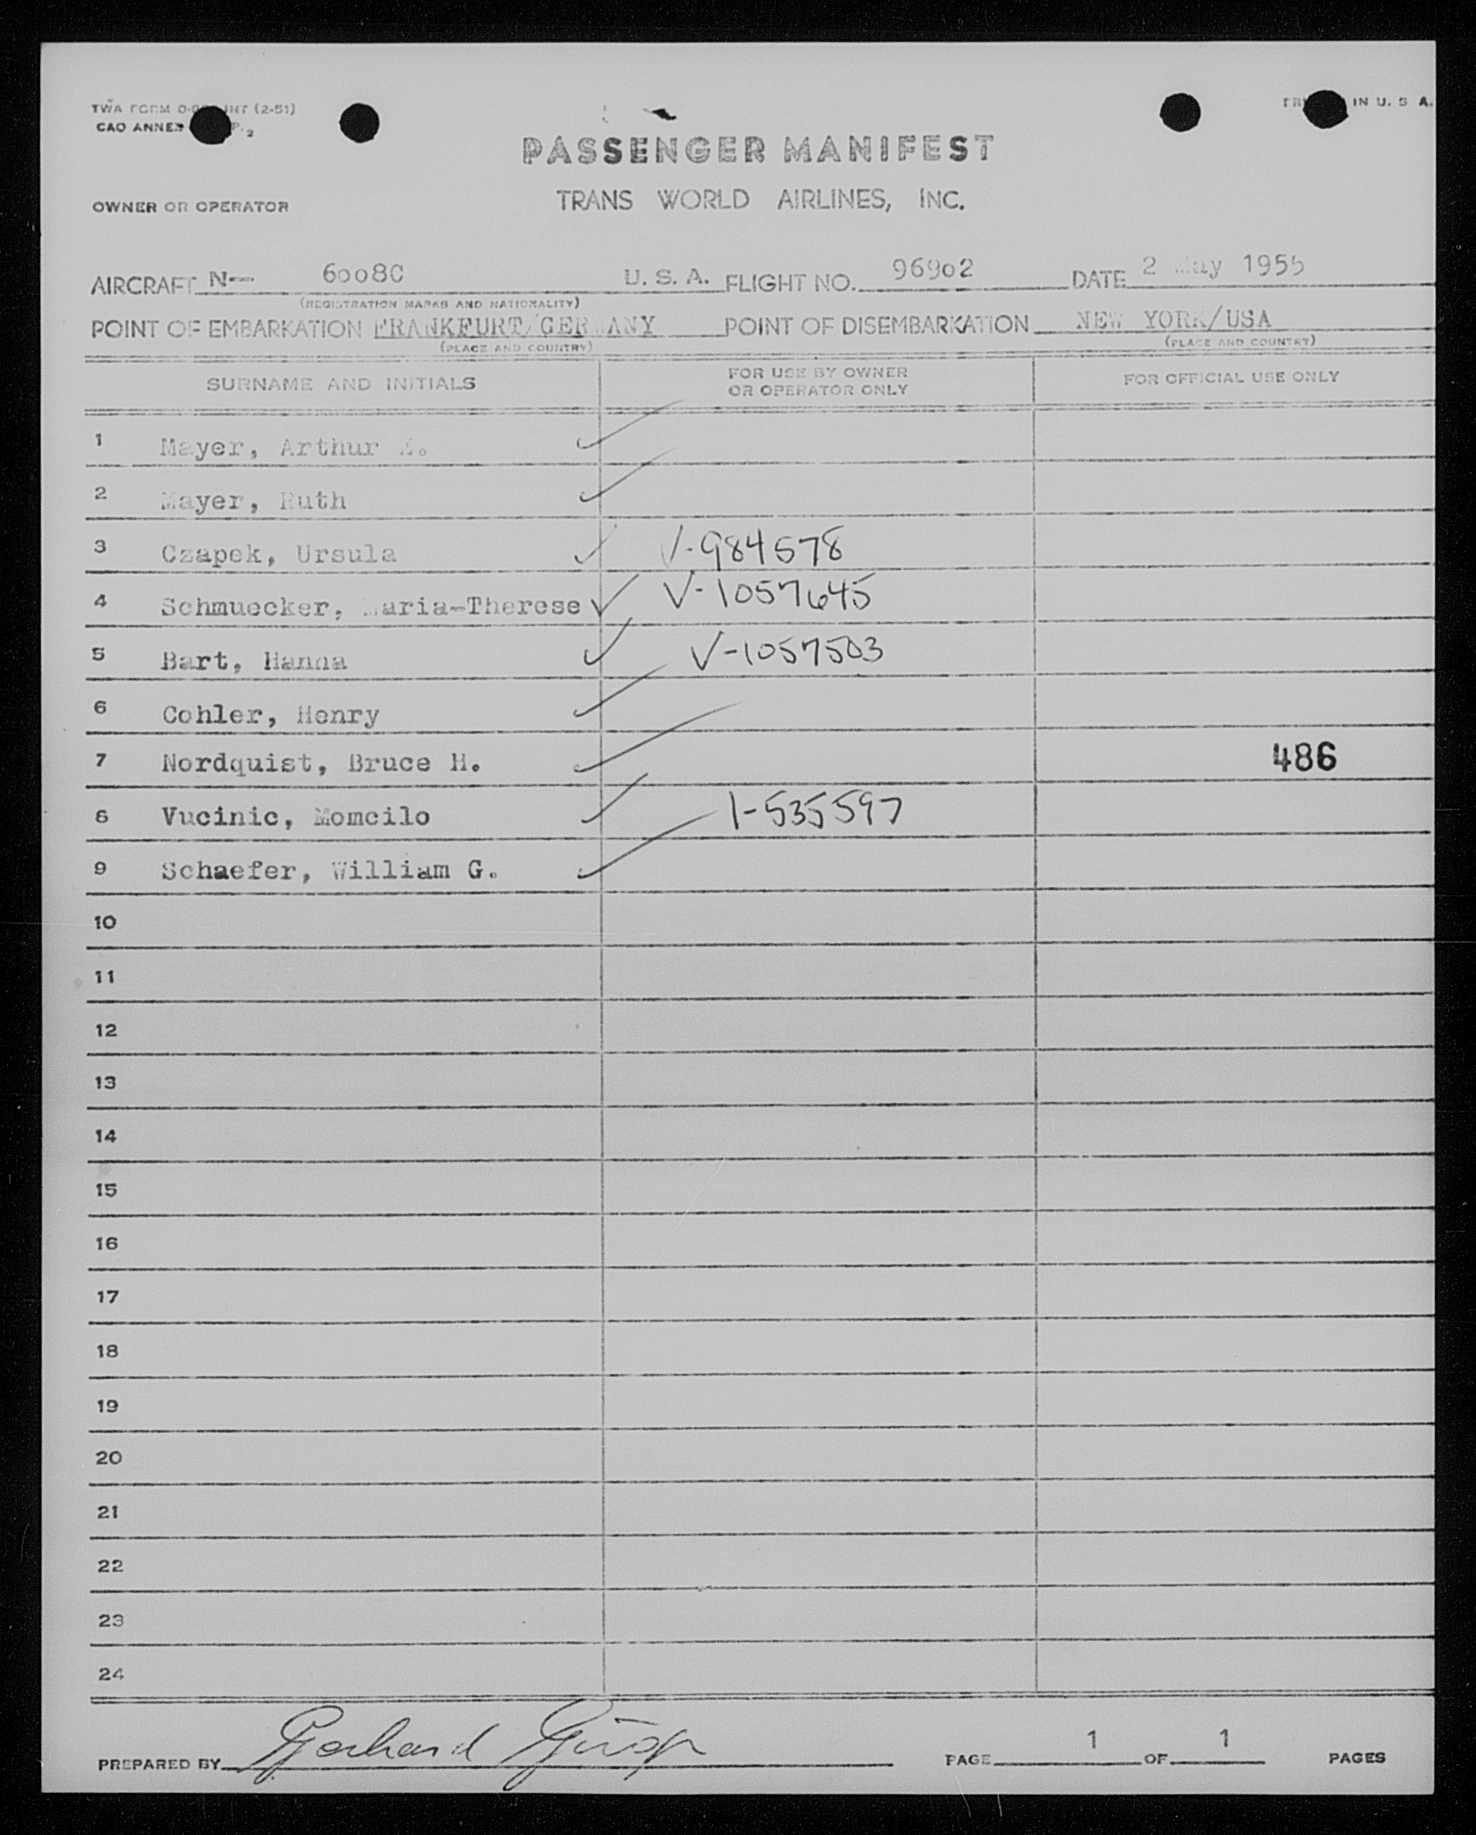 TWA FORM INT (2-51)
CAO ANNEX 2
IN U. S. A.
PASSENGER MANIFEST
OWNER OR OPERATOR TRANS WORLD AIRLINES, INC.
AIRCRAFT N-- 6008C U. S. A. FLIGHT NO. 96902 DATE 2 May 1955
(REGISTRATION MARKS AND NATIONALITY)
POINT OF EMBARKATION FRANKFURT/GERMANY POINT OF DISEMBARKATION NEW YORK/USA
(PLACE AND COUNTRY) (PLACE AND COUNTRY)
SURNAME AND INITIALS FOR USE BY OWNER OR OPERATOR ONLY FOR OFFICIAL USE ONLY
1 Mayer, Arthur
2 Mayer, Ruth
3 Czapek, Ursula V-984578
4 Schmuecker, Maria-Therese V-1057645
5 Bart, Hanna V-1057503
6 Cohler, Henry
7 Nordquist, Bruce H. 486
8 Vucinic, Momcilo I-535597
9 Schaefer, William G.
10
11
12
13
14
15
16
17
18
19
20
21
22
23
24
PREPARED BY Gerhard PAGE 1 OF 1 PAGES